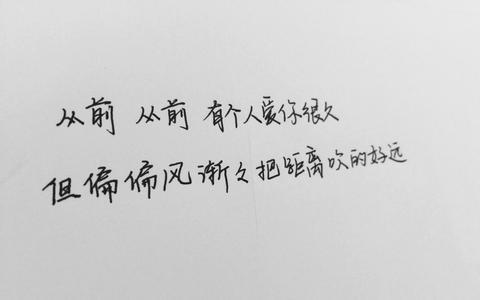 从前 从前 有个人爱你很久
但偏偏风渐久把距离吹的好远